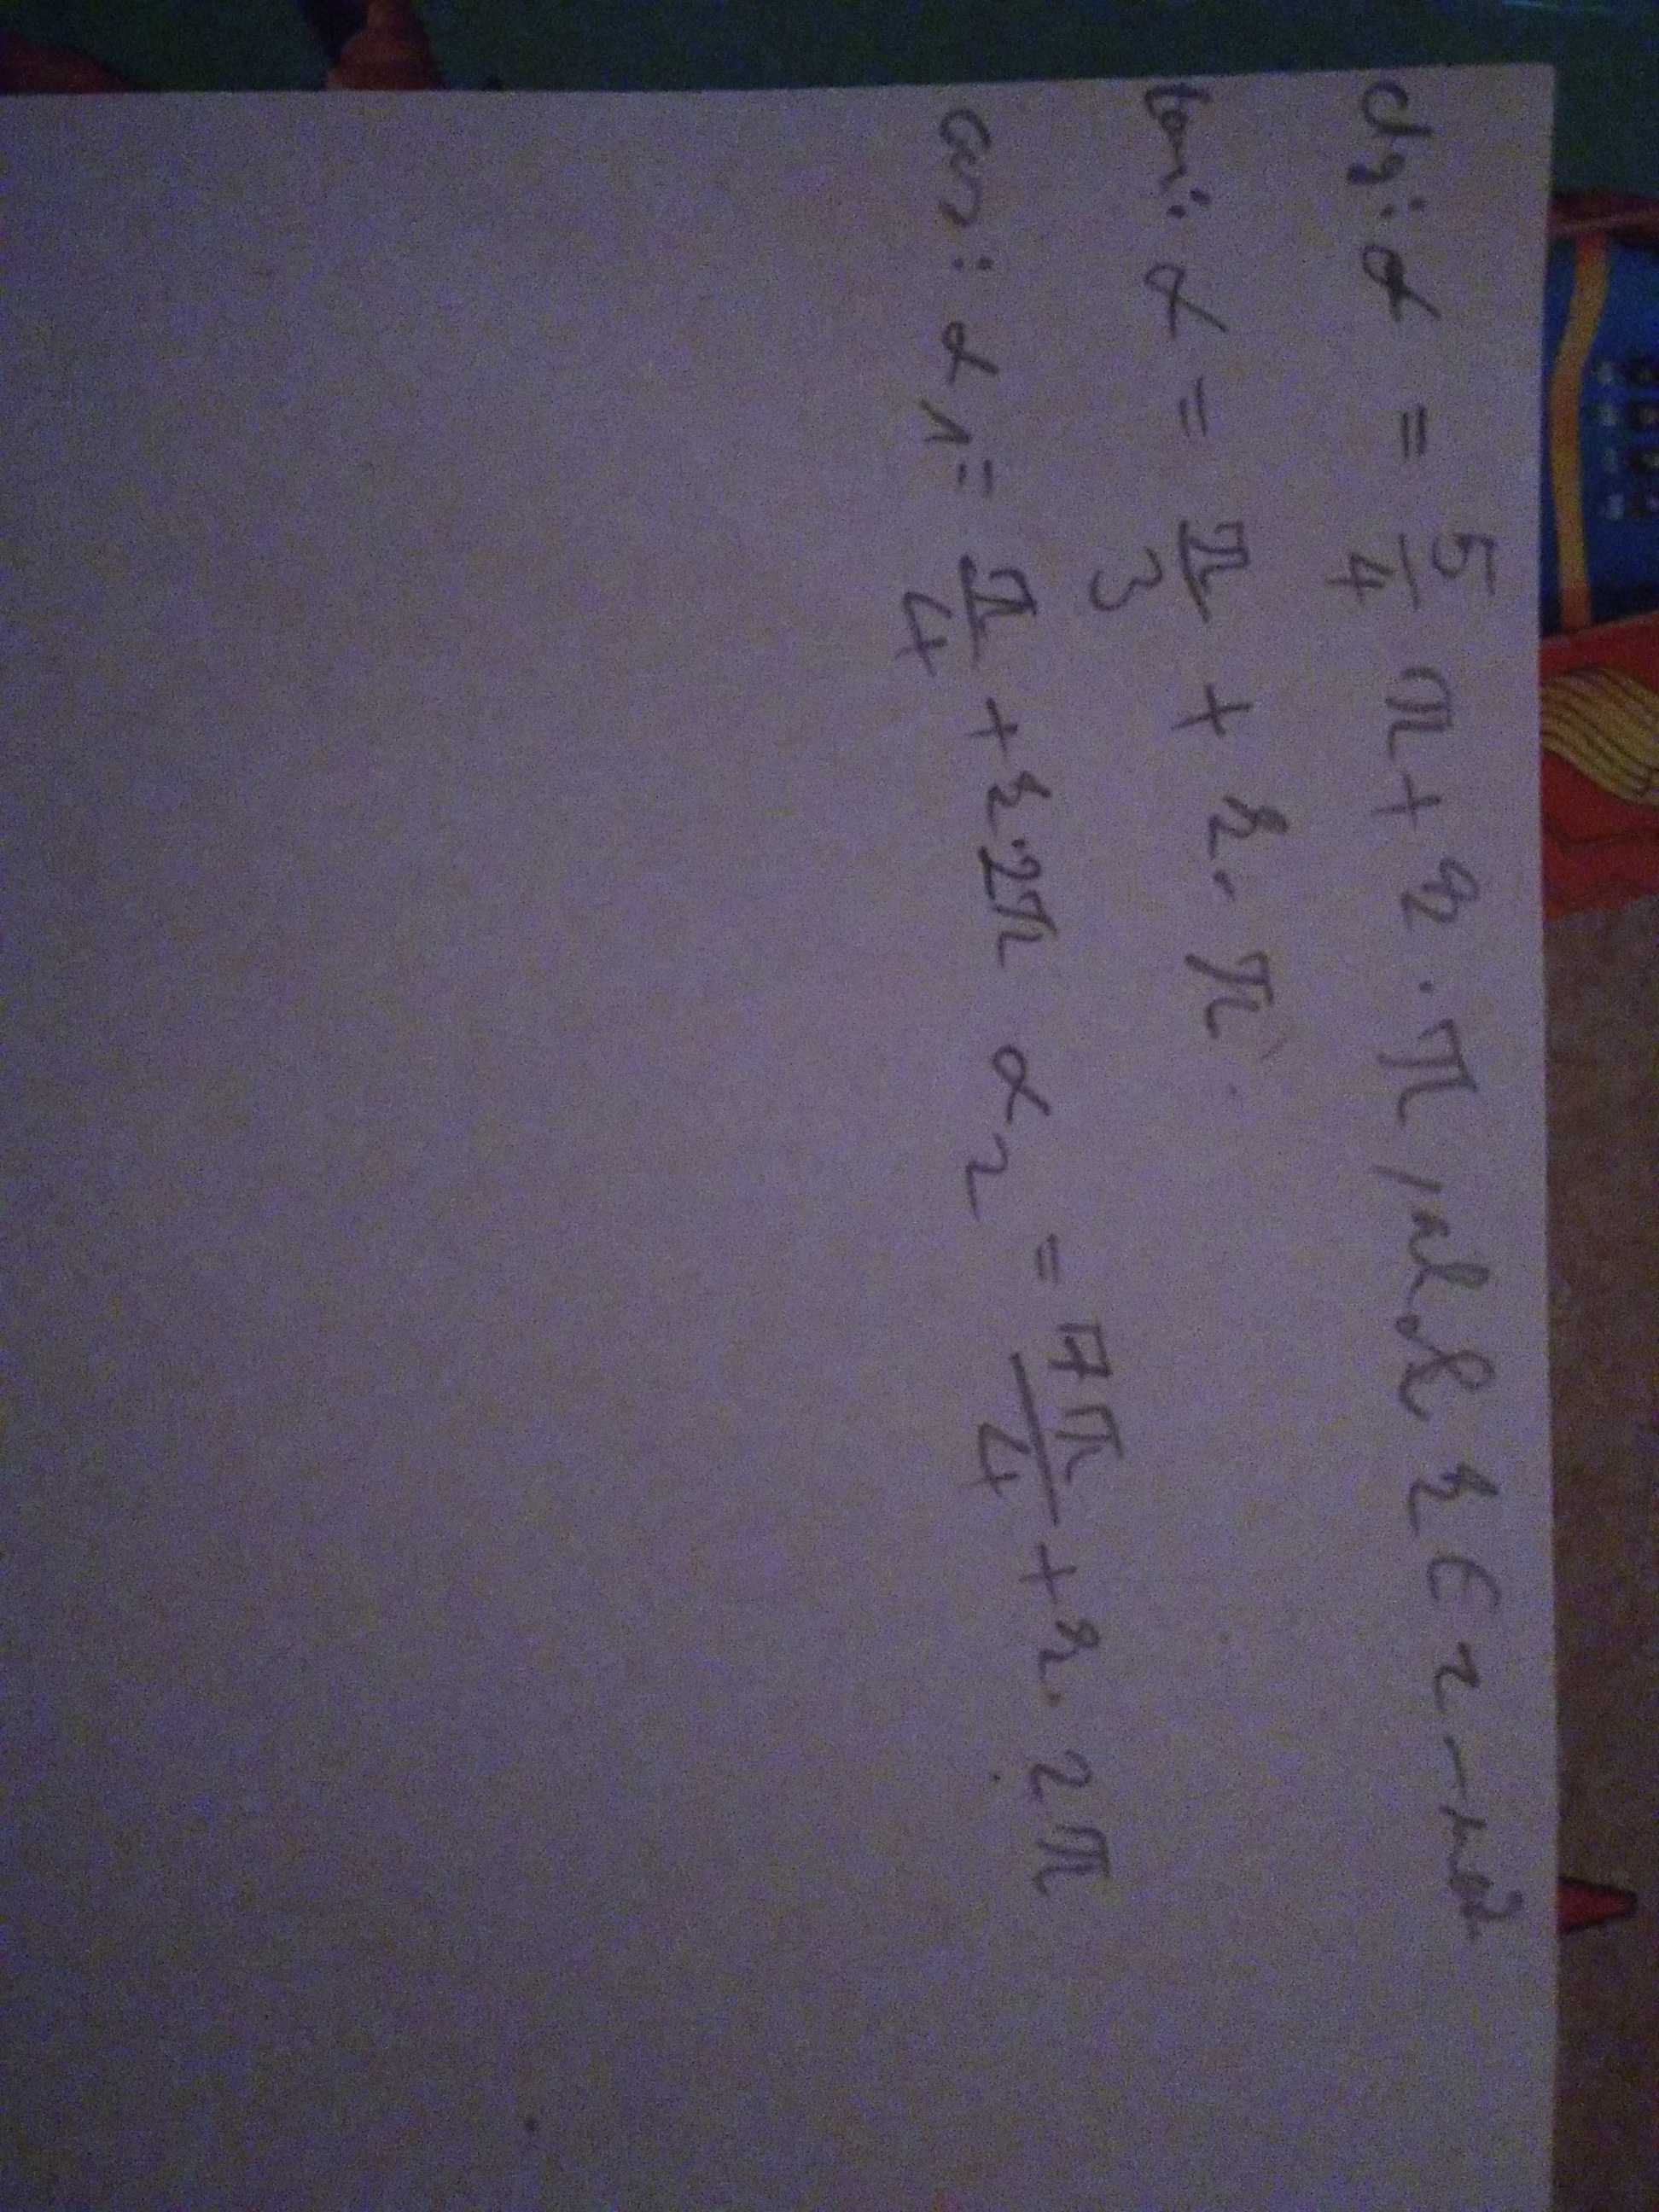 ctg: α = 5/4 π + k · π, ahol k ∈ z
tan: α = π/3 + k · π
cos: α1 = π/4 + k · 2π α2 = 7π/4 + k · 2π